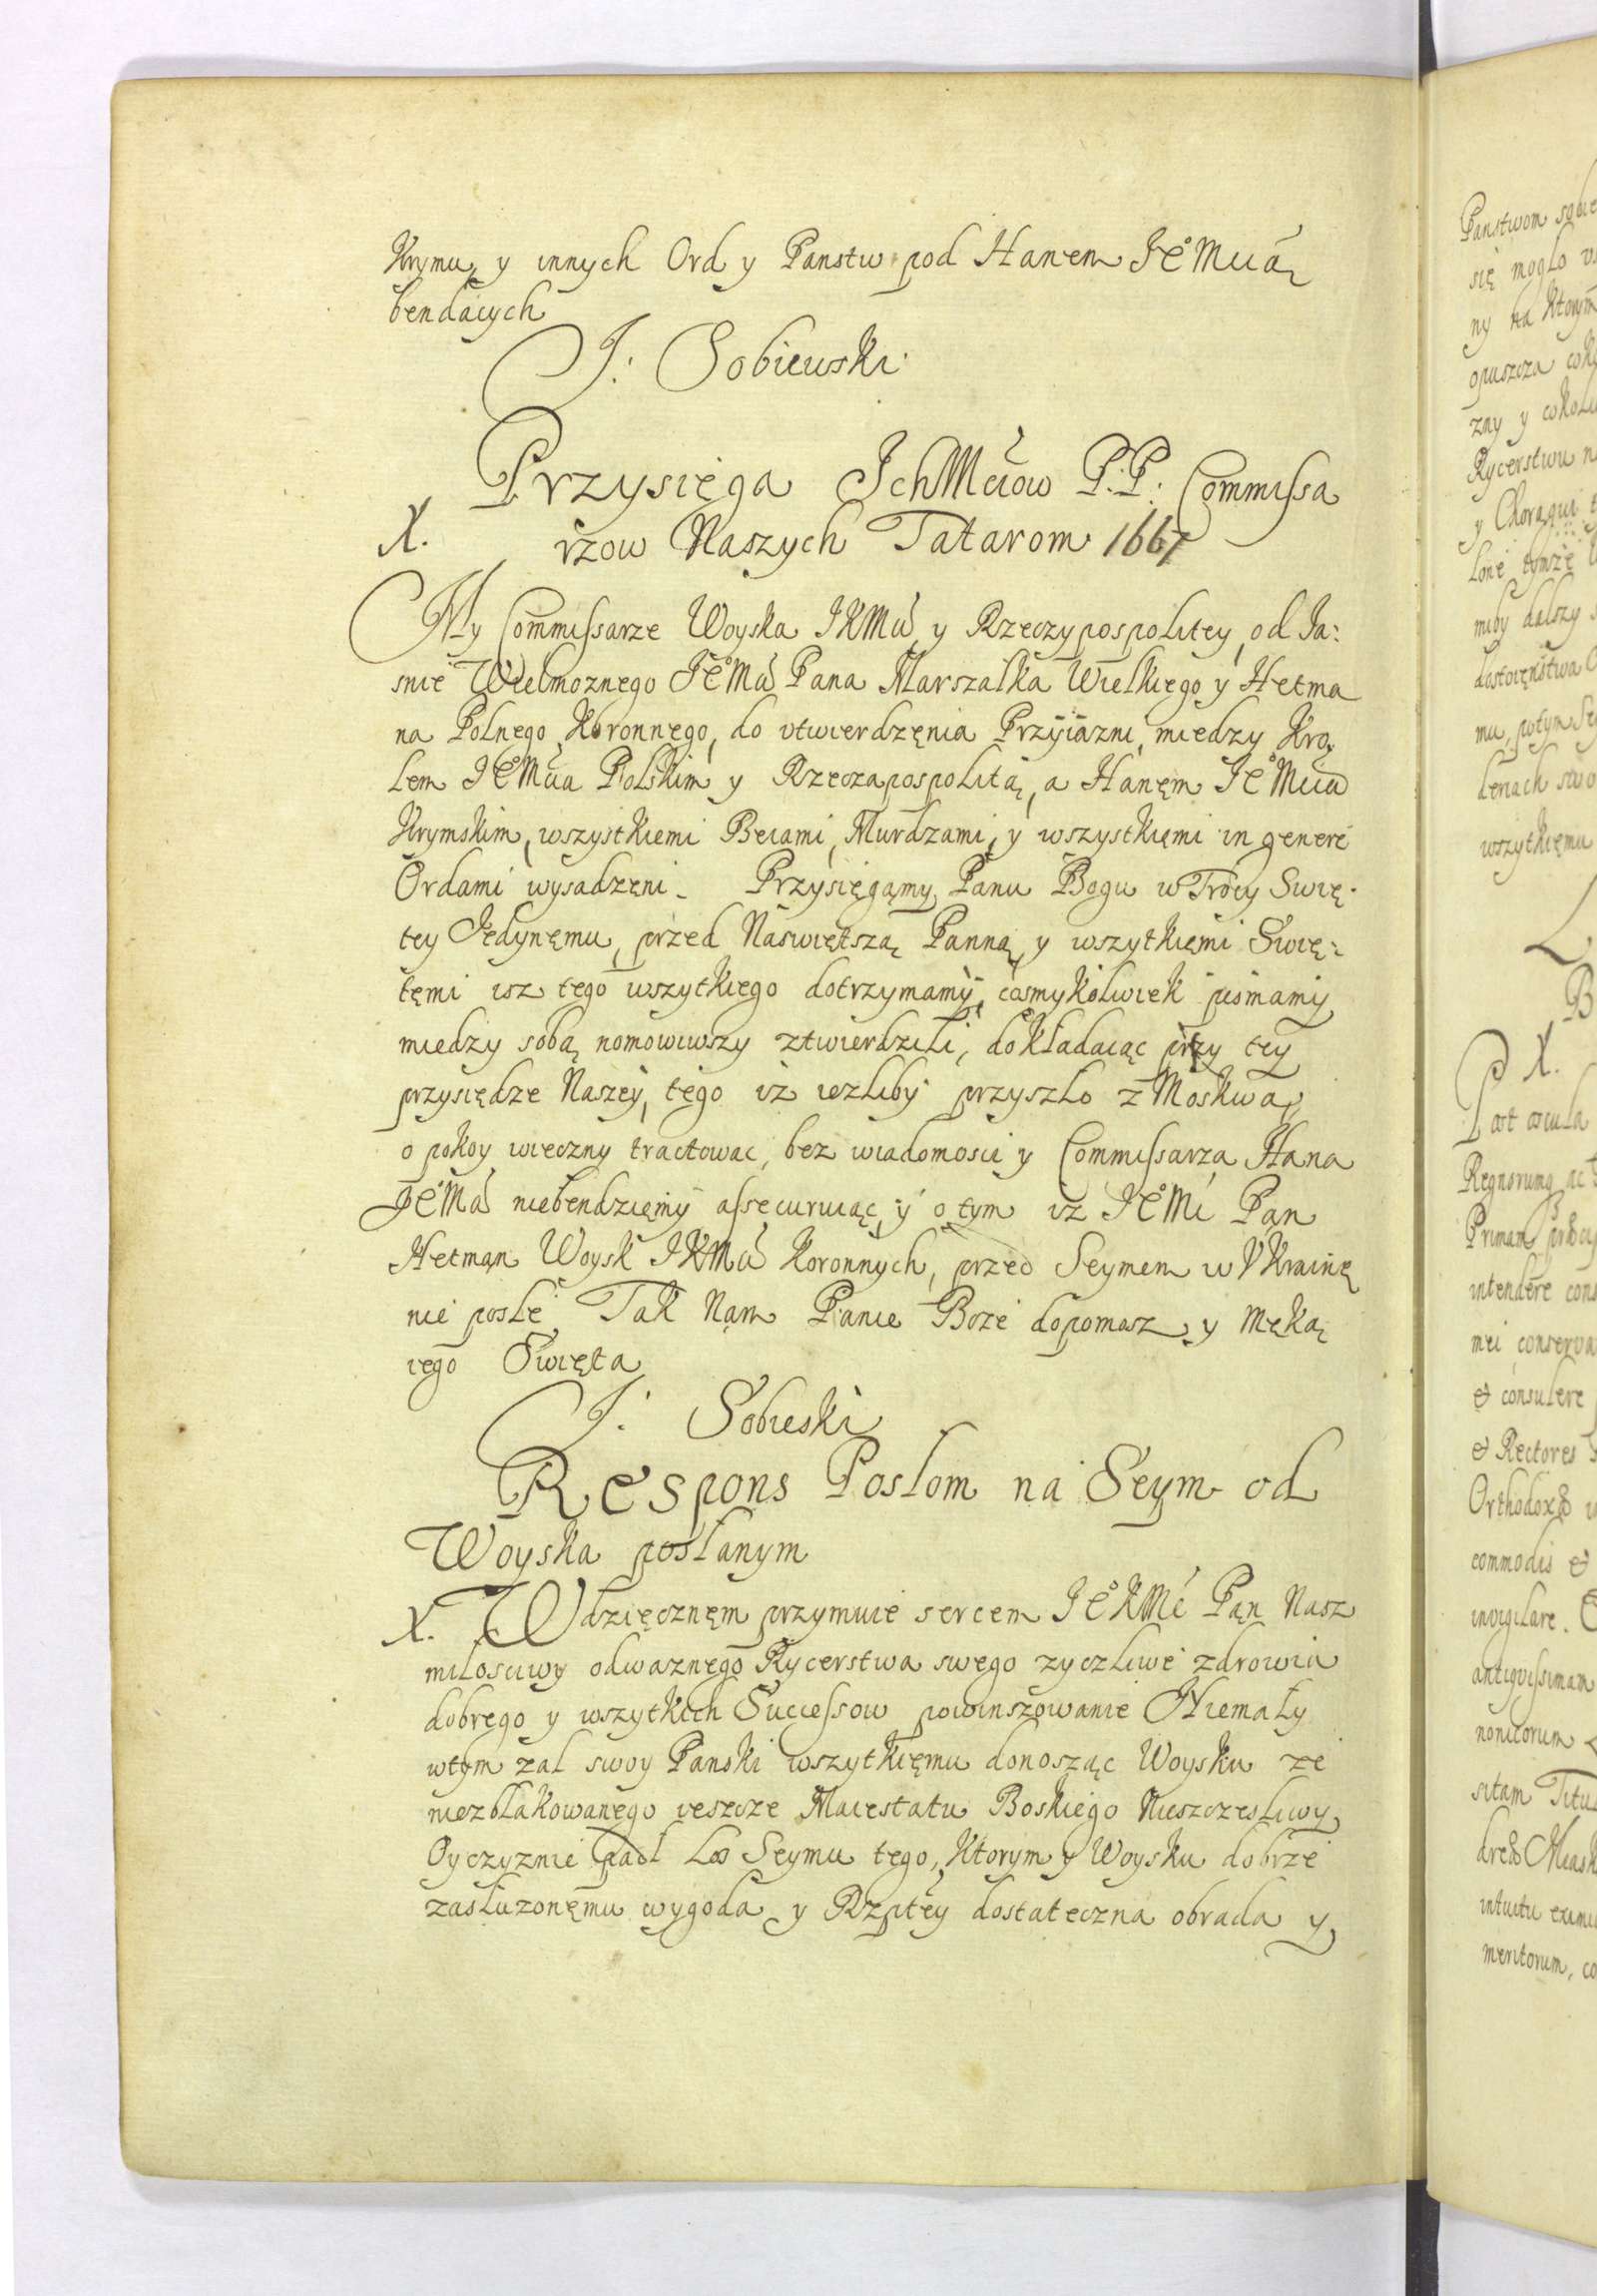 Krymu, y innych Ord y Panstw pod Hanem JEMcią
bendących
J: Sobiewski
Przysięga IchMciow P.P: Commissa
X. rzow Naszych Tatarom 1667
My Commissarze Woyska JKMci y Rzeczypospolitey, od Ja:
snie Wielmoznego JEMci Pana Marszalka Wielkiego y Hetma
na Polnego Koronnego, do utwierdzęnia Przyiazni, miedzy Kro
lem JEMcia Polskim y Rzecząpospolitą, a Hanęm JEMcia
Krymskim, wszystkiemi Beiami, Murdzami, y wszystkięmi in genere
Ordami wysadzęni. Przysięgąmy Panu Bogu w Trocy Swię-
tey Jedynęmu, przed Naswiętszą Panną, y wszytkięmi Swię:
tęmi isz tego wszytkiego dotrzymamy, cosmykolwiek pismamy
miedzy sobą nomowiwszy ztwierdzili, dokładaiąc przy tey
przysiędze Naszey, tego iż iezliby przyszło z Moskwą
o pokoy wieczny tractowac, bez wiadomosci y Commissarza Hana
JEMci niebendzięmy assecuruiąc, y o tym iż JEMć Pąn
Hetmąn Woysk JKMci Koronnych, przed Seymem w Ukrainę
nie posle. Tak Nąm Panie Boże dopomasz y Męką
iego Swięta
J: Sobieski
Respons Posłom na Seym od
Woyska posłanym
X. Wdzięcznęm przymuie sercem JEKMć Pąn Nasz
miłosciwy odwaznęgo Rycerstwa swego zyczliwe zdrowia
dobrego y wszytkich Successow powinszowanie Niemały
wtym zal swoy Panski wszytkięmu donosząc Woysku ze
niezbłakowanęgo ieszcze Maiestatu Boskiego Nieszczesliwy
Oyczyznie padł Los Seymu tego, Ktorym y Woysku dobrze
zasłuzonęmu wygoda y Rzptey dostateczna obrada y
Panstwom sobie
się mogło
ny na Ktorym
opuszcza
zny y
Rycerstwu
y Chorągwi
tymze
dalszy
dostoięnstwa
mu, potym
wszytkięmu
L.
B
X.
Post
Regnorumq ac
Primam
intendere
mei conserva
& consulere
& Rectores
Orthodoxæ
commodis &
invigilare.
antiquissimam
sitam Titu
intuitu
meritorum, co